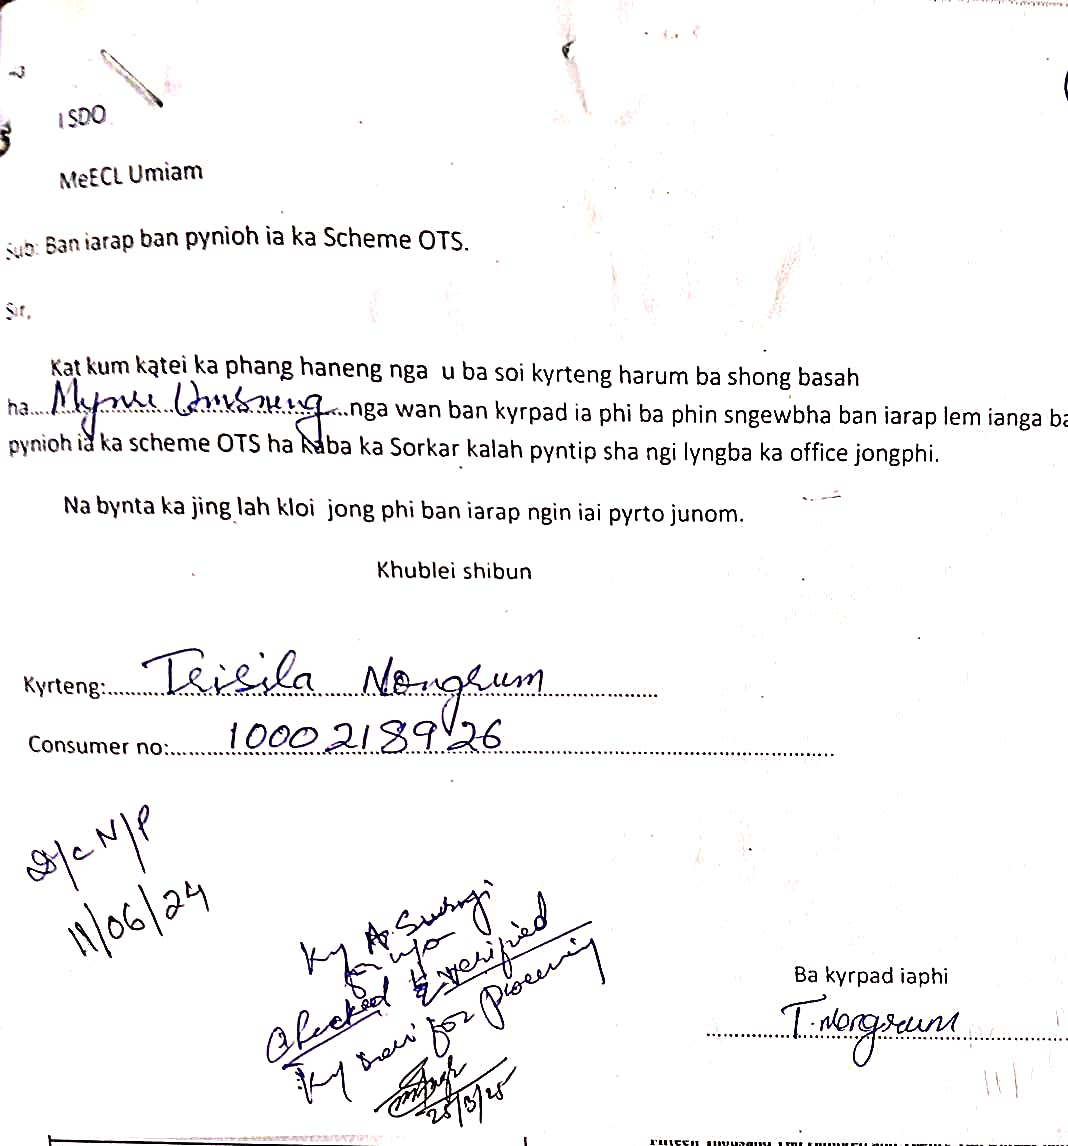 I SDO
MeECL Umiam
Sub: Ban iarap ban pynioh ia ka Scheme OTS.
Sir,
Kat kum katei ka phang haneng nga u ba soi kyrteng harum ba shong basah
ha....Mynri Umsning...nga wan ban kyrpad ia phi ba phin sngewbha ban iarap lem ianga ba
pynioh ia ka scheme OTS ha kaba ka Sorkar kalah pyntip sha ngi lyngba ka office jongphi.
Na bynta ka jing lah kloi jong phi ban iarap ngin iai pyrto junom.
Khublei shibun
Kyrteng:.........Teisila Nongrum
Consumer no:.........1000218926
D/c N/P
11/06/24
Ky A.
for n/a
Checked & verified
Ky for Processing
25/3/25
Ba kyrpad iaphi
T. Nongrum